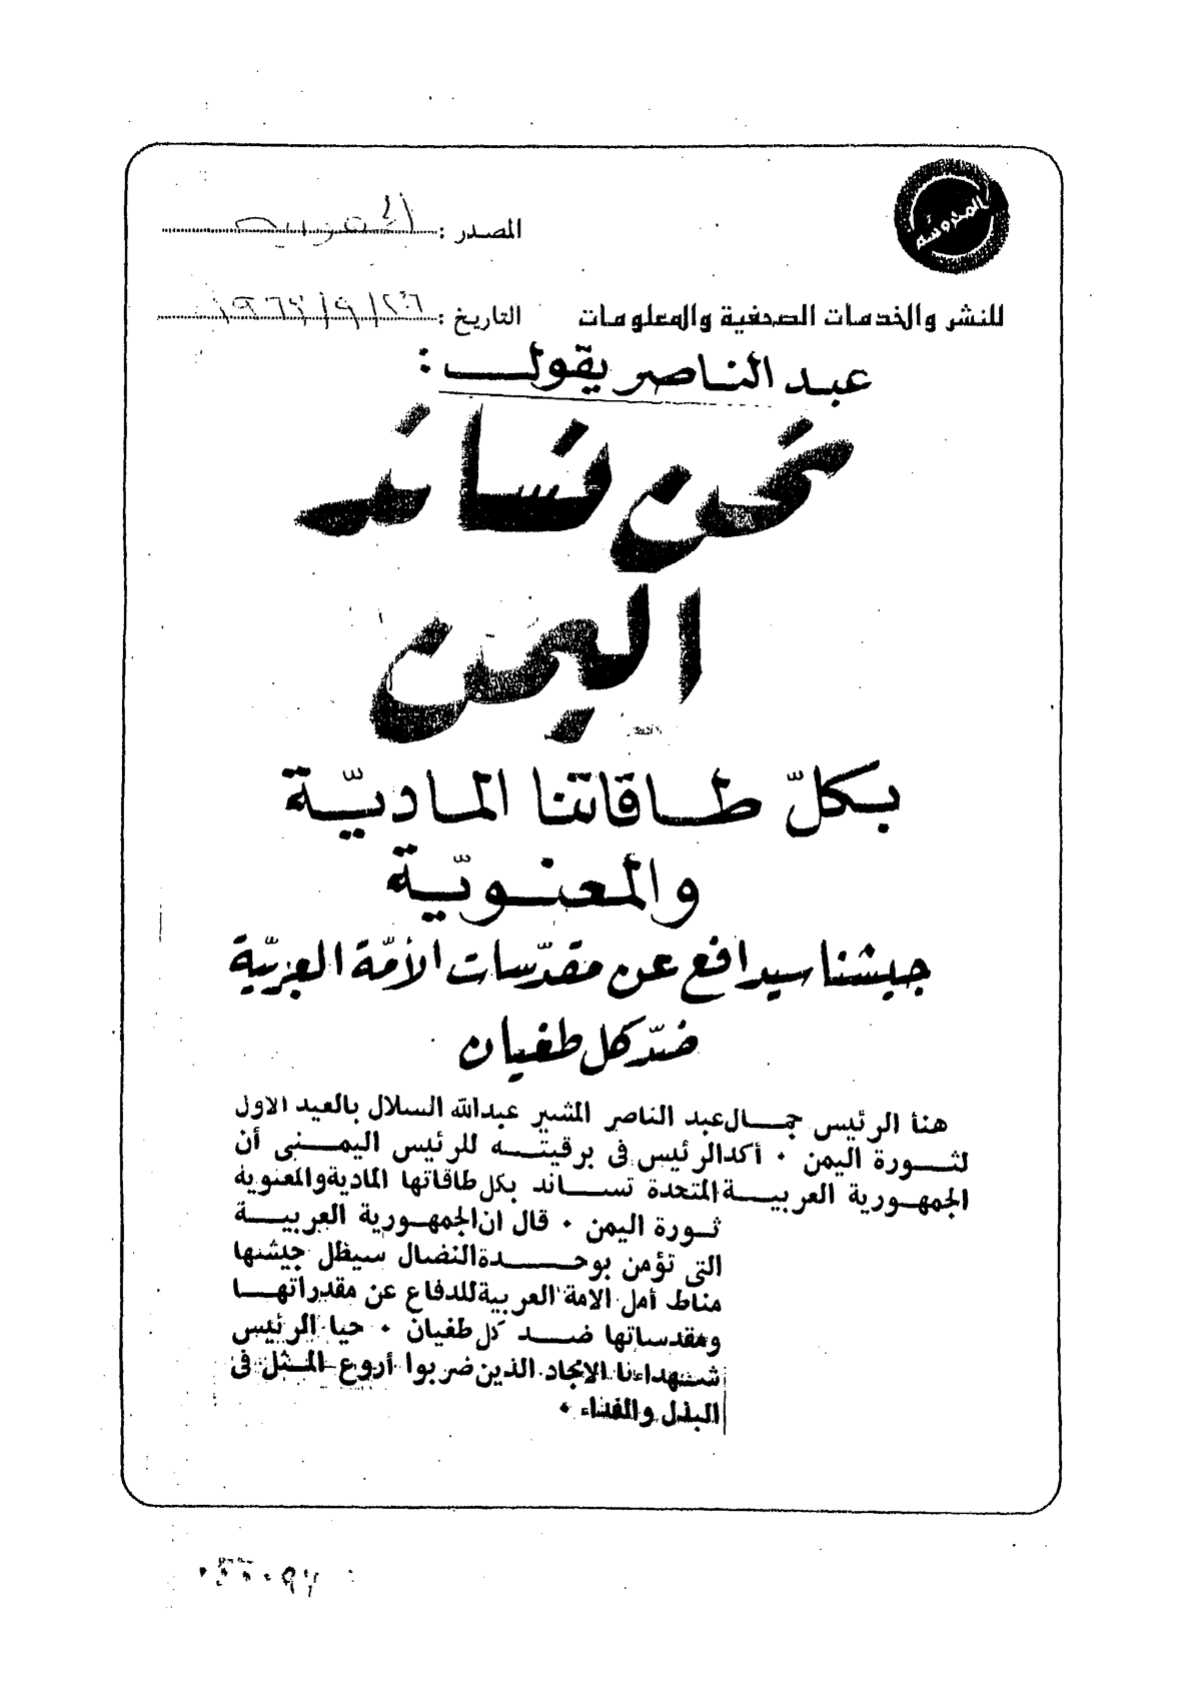 المحروسة
المصدر :
للنشر والخدمات الصحفية والمعلومات
التاريخ : ٢٦ / ٩ / ١٩٦٣
عبد الناصر يقول :
نحن نساند
اليمن
بكلّ طاقاتنا المادّية
والمعنويّة
جيشنا سيدافع عن مقدّسات الأمّة العربيّة
ضدّ كل طغيان
هنأ الرئيس جمال عبد الناصر المشير عبدالله السلال بالعيد الاول
لثورة اليمن • أكد الرئيس فى برقيته للرئيس اليمنى أن
الجمهورية العربية المتحدة تساند بكل طاقاتها المادية والمعنوية
ثورة اليمن • قال ان الجمهورية العربية
التى تؤمن بوحدة النضال سيظل جيشها
مناط أمل الامة العربية للدفاع عن مقدراتها
ومقدساتها ضد كل طغيان • حيا الرئيس
شهداءنا الامجاد الذين ضربوا أروع المثل فى
البذل والفداء •